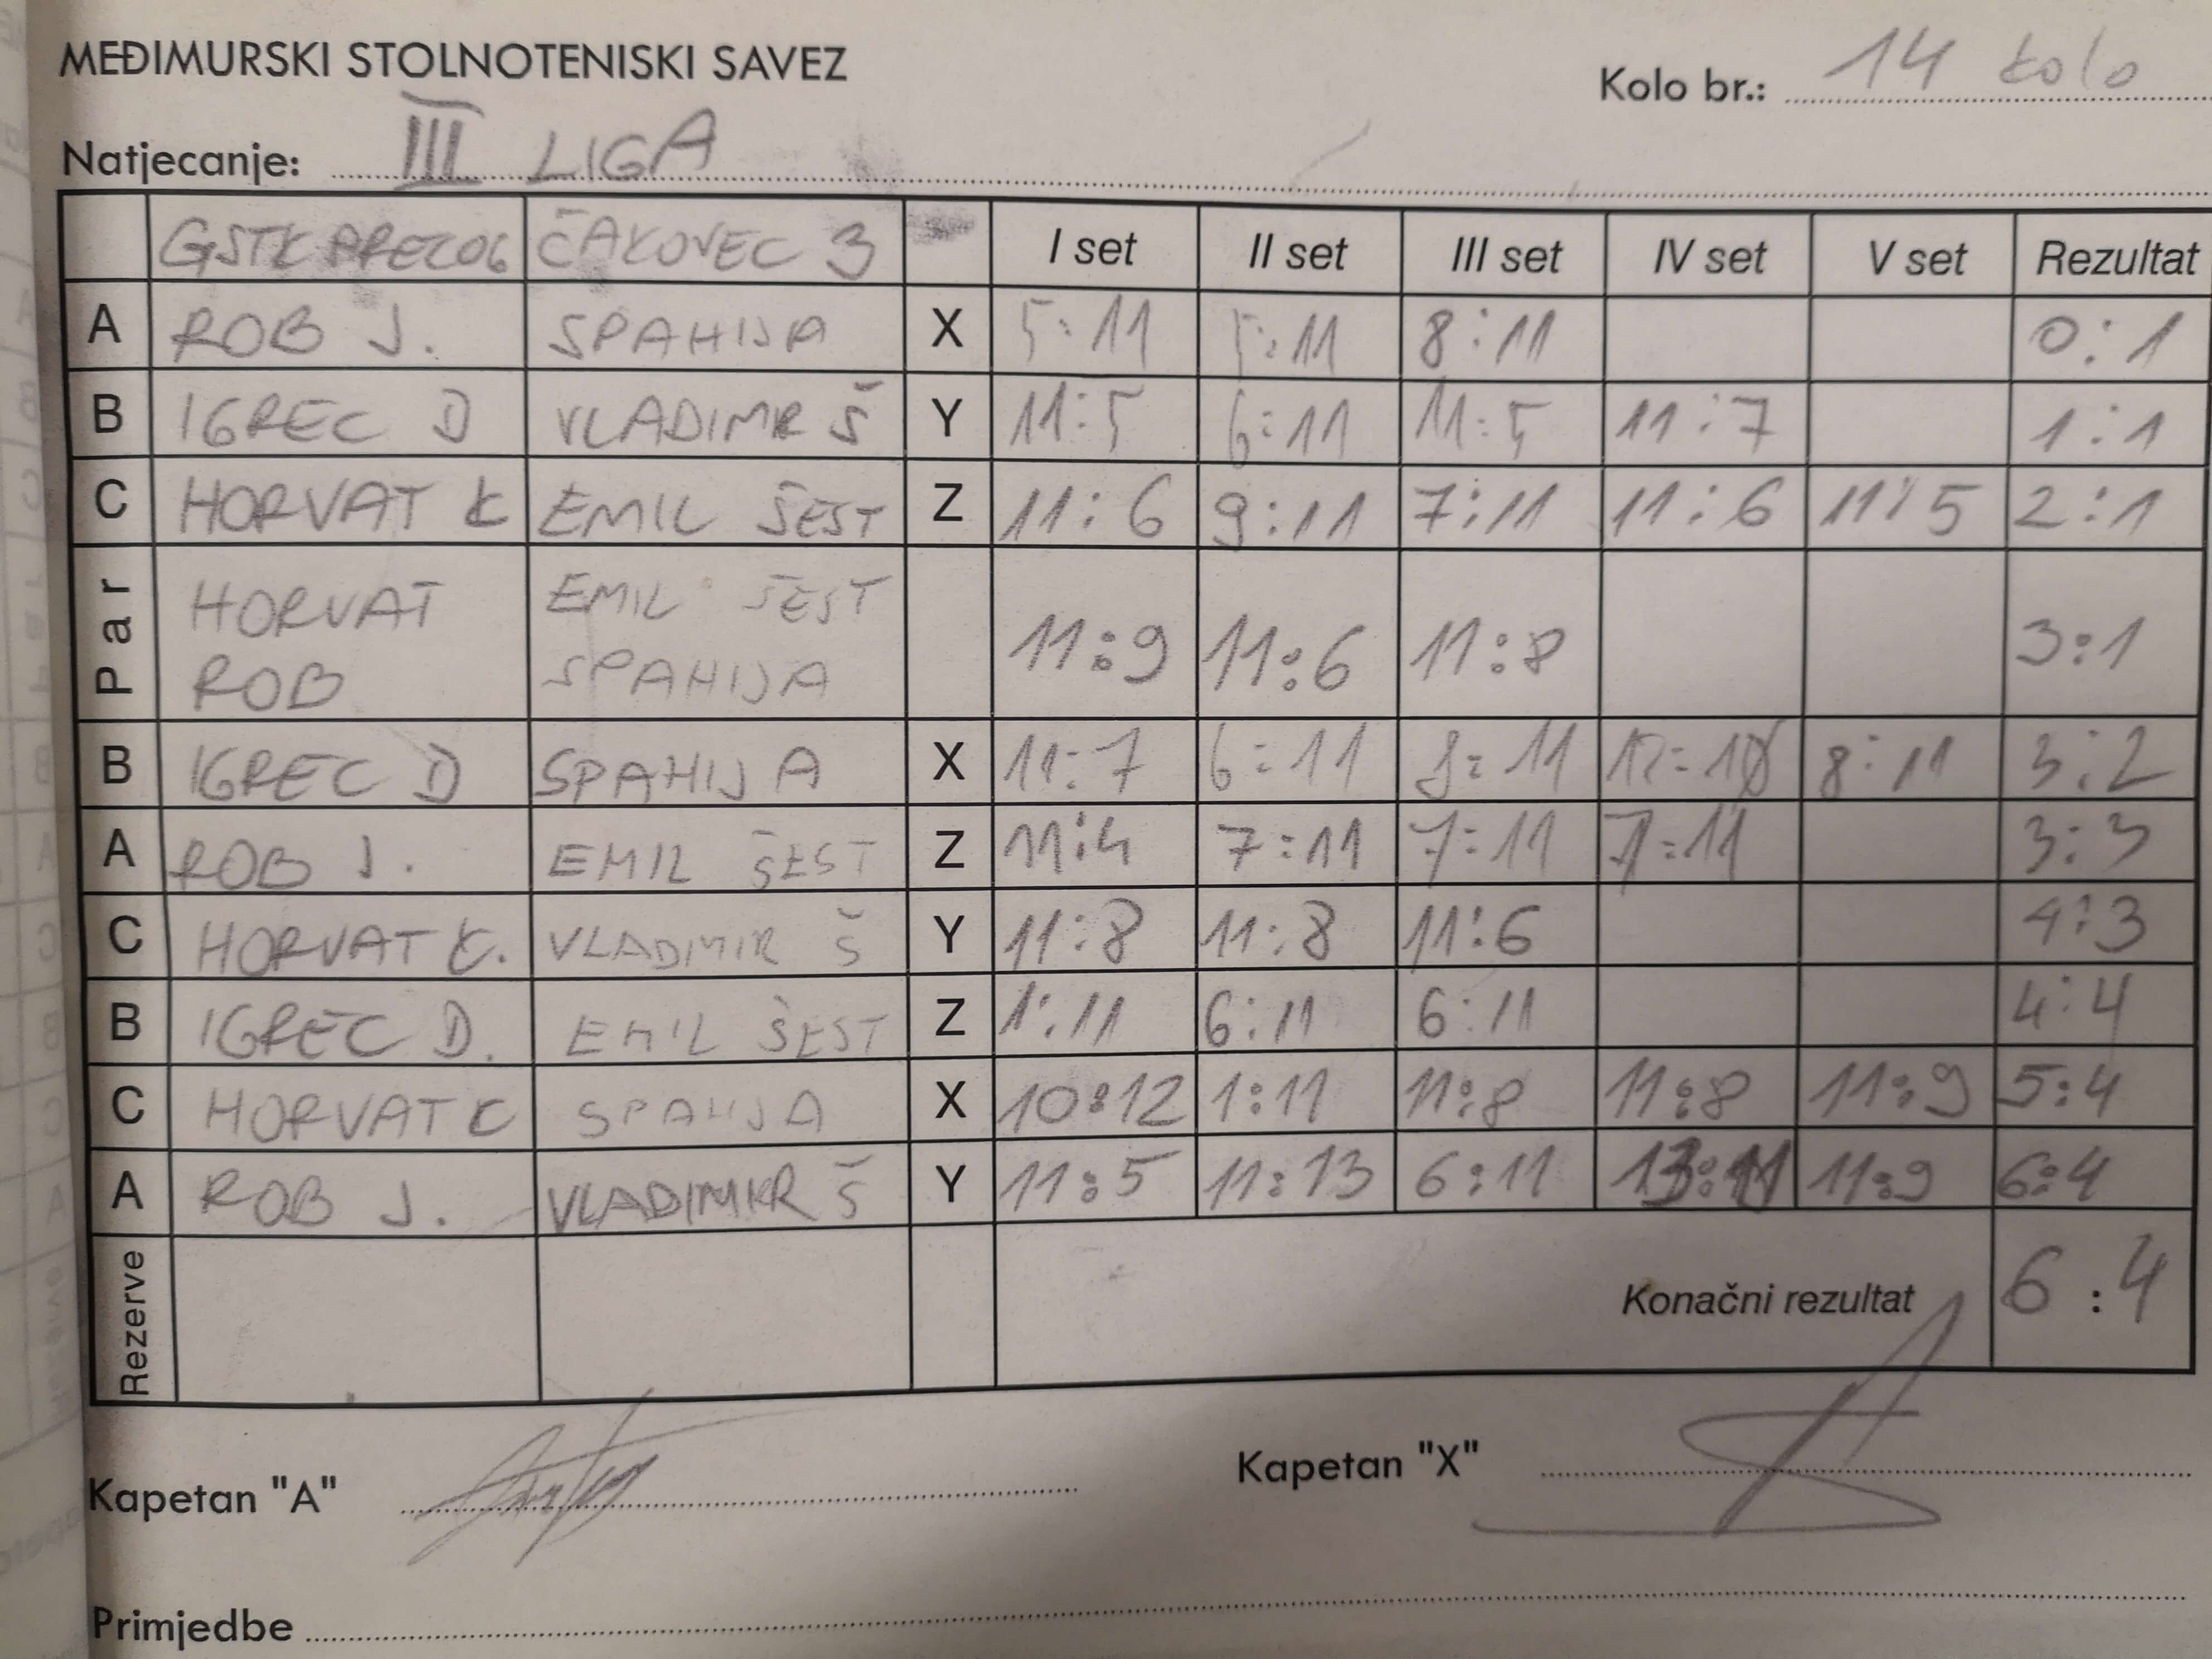 MEĐIMURSKI STOLNOTENISKI SAVEZ
Kolo br.: 14 kolo
Natjecanje: III LIGA
GSTK PRELOG ČAKOVEC 3 I set II set III set IV set V set Rezultat
A ROB J. SPAHIJA X 5:11 5:11 8:11 0:1
B IGREC D VLADIMIR Š Y 11:5 6:11 11:5 11:7 1:1
C HORVAT K EMIL ŠEST Z 11:6 9:11 7:11 11:6 11:5 2:1
Par HORVAT ROB EMIL ŠEST SPAHIJA 11:9 11:6 11:8 3:1
B IGREC D SPAHIJA X 11:7 6:11 8:11 12:10 8:11 3:2
A ROB J. EMIL ŠEST Z 11:4 7:11 7:11 7:11 3:3
C HORVAT K. VLADIMIR Š Y 11:8 11:8 11:6 4:3
B IGREC D. EMIL ŠEST Z 1:11 6:11 6:11 4:4
C HORVAT K SPAHIJA X 10:12 1:11 11:8 11:8 11:9 5:4
A ROB J. VLADIMIR Š Y 11:5 11:13 6:11 13:11 11:9 6:4
Rezerve Konačni rezultat 6:4
Kapetan "A" Kapetan "X"
Primjedbe